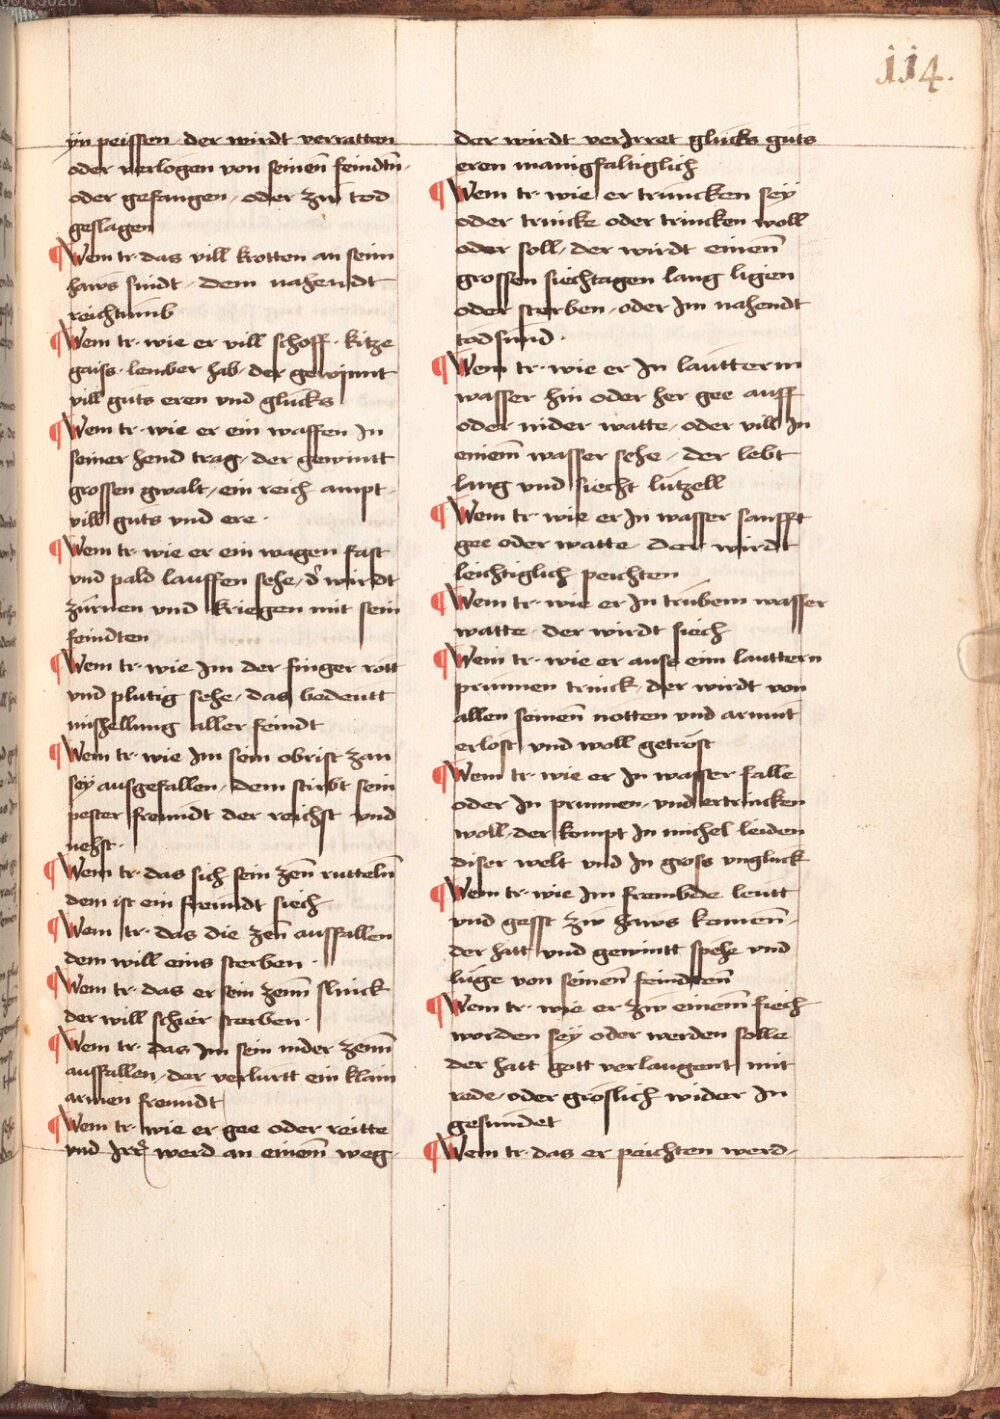 114.
yn peissen · der wirdt verratten
oder verlogen von seinen̄ feindtn̄ ·
oder gefangen / oder zw tod
geslagen
¶ Wem tr · das vill krotten an seim
haws sindt / dem nahendt
reichtumb
¶ Wem tr · wie er vill schoff · kitze
gaiss · lember hab · der gewinnt
vill guts eren vnd glucks
¶ Wem tr · wie er ein waffen In
seiner hend trag / der gewintt
grossen gwalt / ein reich ampt ·
vill guts vnd ere ·
¶ Wem tr · wie er ein wagen fast
vnd pald lauffen sehe / d' wirdt
zurnen vnd kriegen mit sein
feindten
¶ Wem tr · wie Im der finger rott
vnd plutig sehe / das bedeutt
mishellung aller feindt
¶ Wem tr · wie Im sein obrist zan
sey ausgefallen / dem stirbt sein
pester freundt der reichst vnd
nehst ·
¶ Wem tr · das sich sein zen̄ rutteln̄
dem ist ein freundt siech
¶ Wem tr · das die zen̄ ausfallen
dem will eins sterben ·
¶ Wem tr · das er sein zenn̄ slinck
der will schier sterben ·
¶ Wem tr · das Im sein nider zenn̄
ausfallen / der verlurtt ein klain
armen freundt
¶ Wem tr · wie er gee oder reitte
vnd Irr werd an einem̄ weg ·
der wirdt verIrret glucks guts
eren manigfaltiglich
¶ Wem tr · wie er truncken sey
oder trincke oder trincken woll
oder soll / der wirdt einen̄
grossen siechtagen lang ligen
oder sterben / oder Im nahendt
todsund ·
¶ Wem tr · wie er In lautterm
wasser hin oder her gee auff
oder nider watte / oder vill In
einem̄ wasser sehe / der lebt
lang vnd siecht lutzell
¶ Wem tr · wie er In wasser sanfft
gee oder watte der wirdt
leichtiglich peichten
¶ Wem tr · wie er In trubem wasser
watte · der wirdt siech
¶ Wem tr · wie er auss eim lauttern
prunnen trinck / der wirdt von
allen seinen̄ notten vnd armut
erlost vnd woll getrost
¶ Wem tr · wie er In wasser falle
oder In prunnen / vnd ertrincken
woll / der kompt In michel leiden
diser welt vnd In gross vngluck
¶ Wem tr · wie Im frembde leutt
vnd gesst zw haws komen̄ ·
der hatt vnd gewintt spehe vnd
luge von seinen̄ feindten̄
¶ Wem tr · wie er zw einem̄ siech
worden sey oder werden solle
der hatt gott verlaugent mit
rede / oder groslich wider In
gesundet
¶ Wem tr · das er peichten werd /